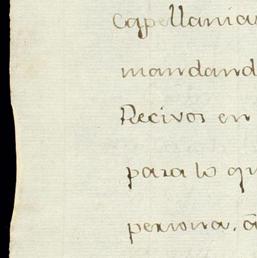 Capellanias
mandand
Recivos en
para lo qu
persona, á